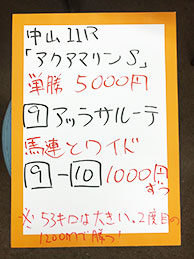 中山11R
「アクアマリンS」
単勝 5000円
9 アッラサルーテ
馬連とワイド
9-10 1000円ずつ
※53キロは大きい。2度目の
1200mで勝つ!